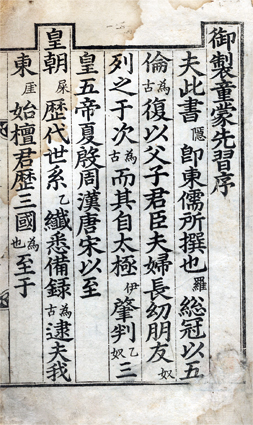 御製童蒙先習序
夫此書隱即東儒所撰也羅総冠以五
倫為古復以父子君臣夫婦長幼朋友奴
列之于次為古而其自太極伊肇判乙奴三
皇五帝夏殷周漢唐宋以至
皇朝屎歴代世系乙纖悉備録為古逮夫我
東厓始檀君歴三國為也至于